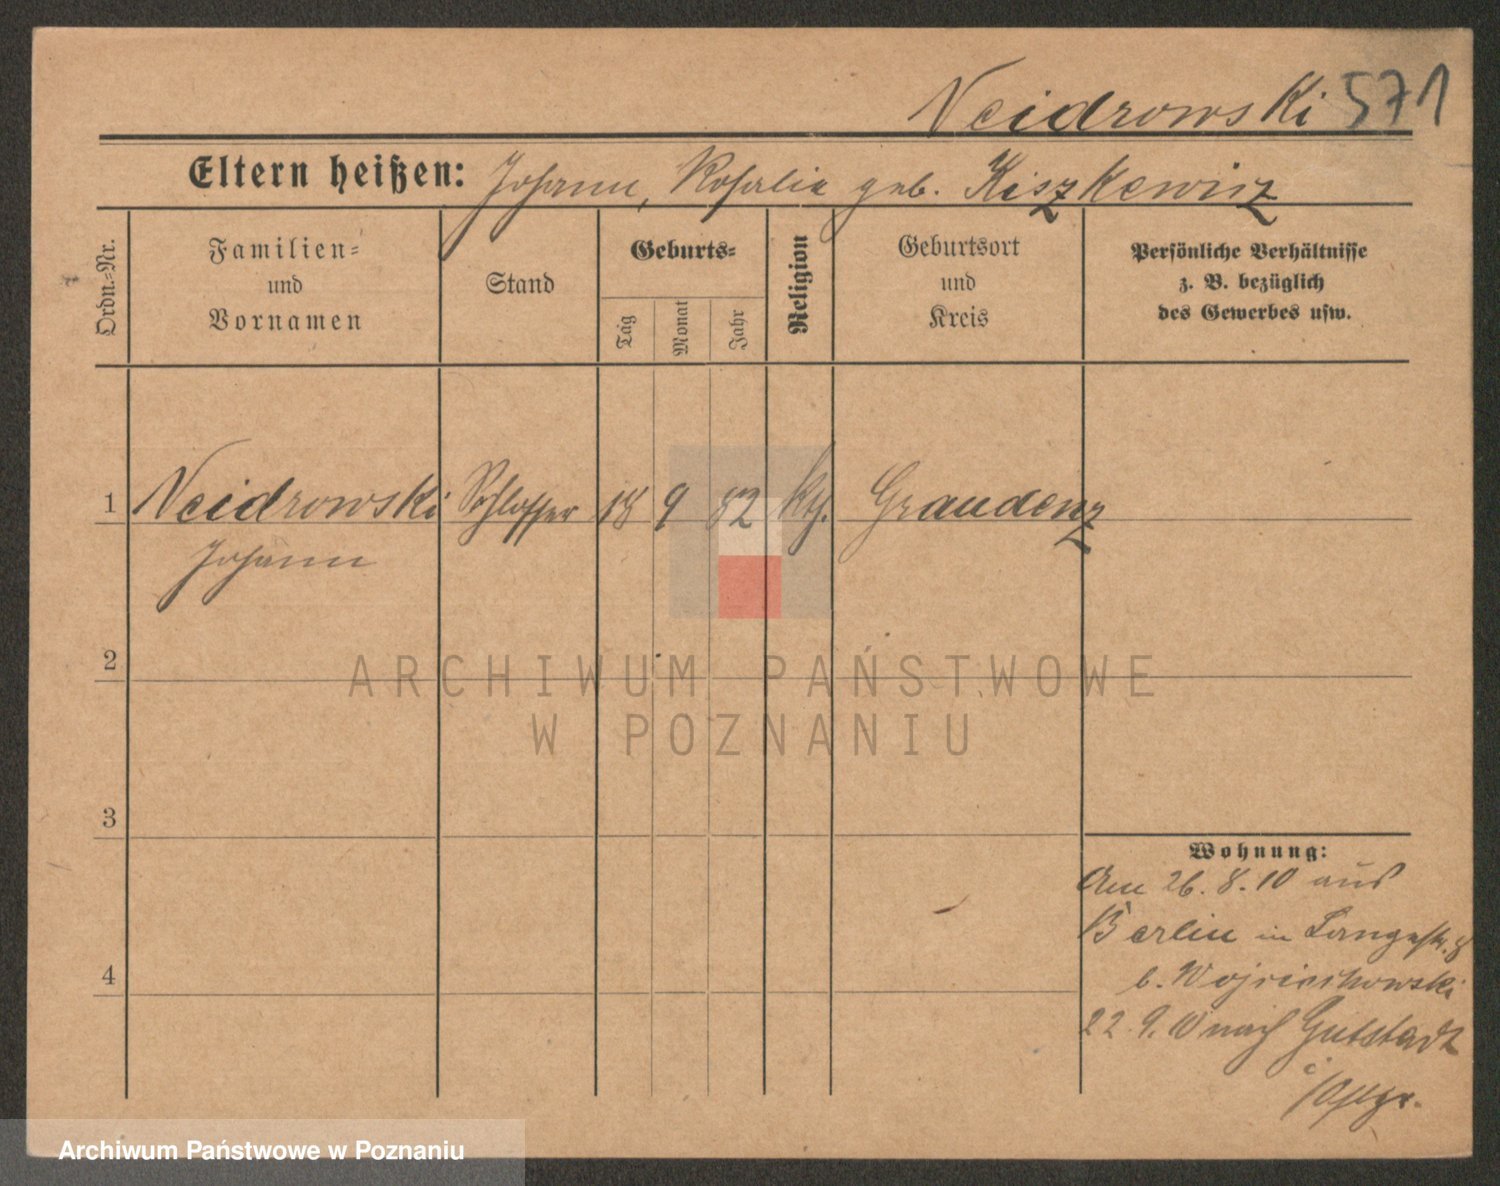 Neidrowski 571
Eltern heißen: Johann, Rosalia geb. Kiszkewicz
Ordn.-Nr.
Familien-
und
Vornamen
Stand
Geburts-
Tag
Monat
Jahr
Religion
Geburtsort
und
Kreis
Persönliche Verhältnisse
z. B. bezüglich
des Gewerbes usw.
1 Neidrowski Schlosser 18 9 82 kth. Graudenz
Johann
2
3
4
Wohnung:
Am 26. 8. 10 aus
Berlin in Langestr. 8
b. Wojciechowski
22. 9. 10 nach Gutstadt
i
/Ostpr.
ARCHIWUM PAŃSTWOWE
W POZNANIU
Archiwum Państwowe w Poznaniu